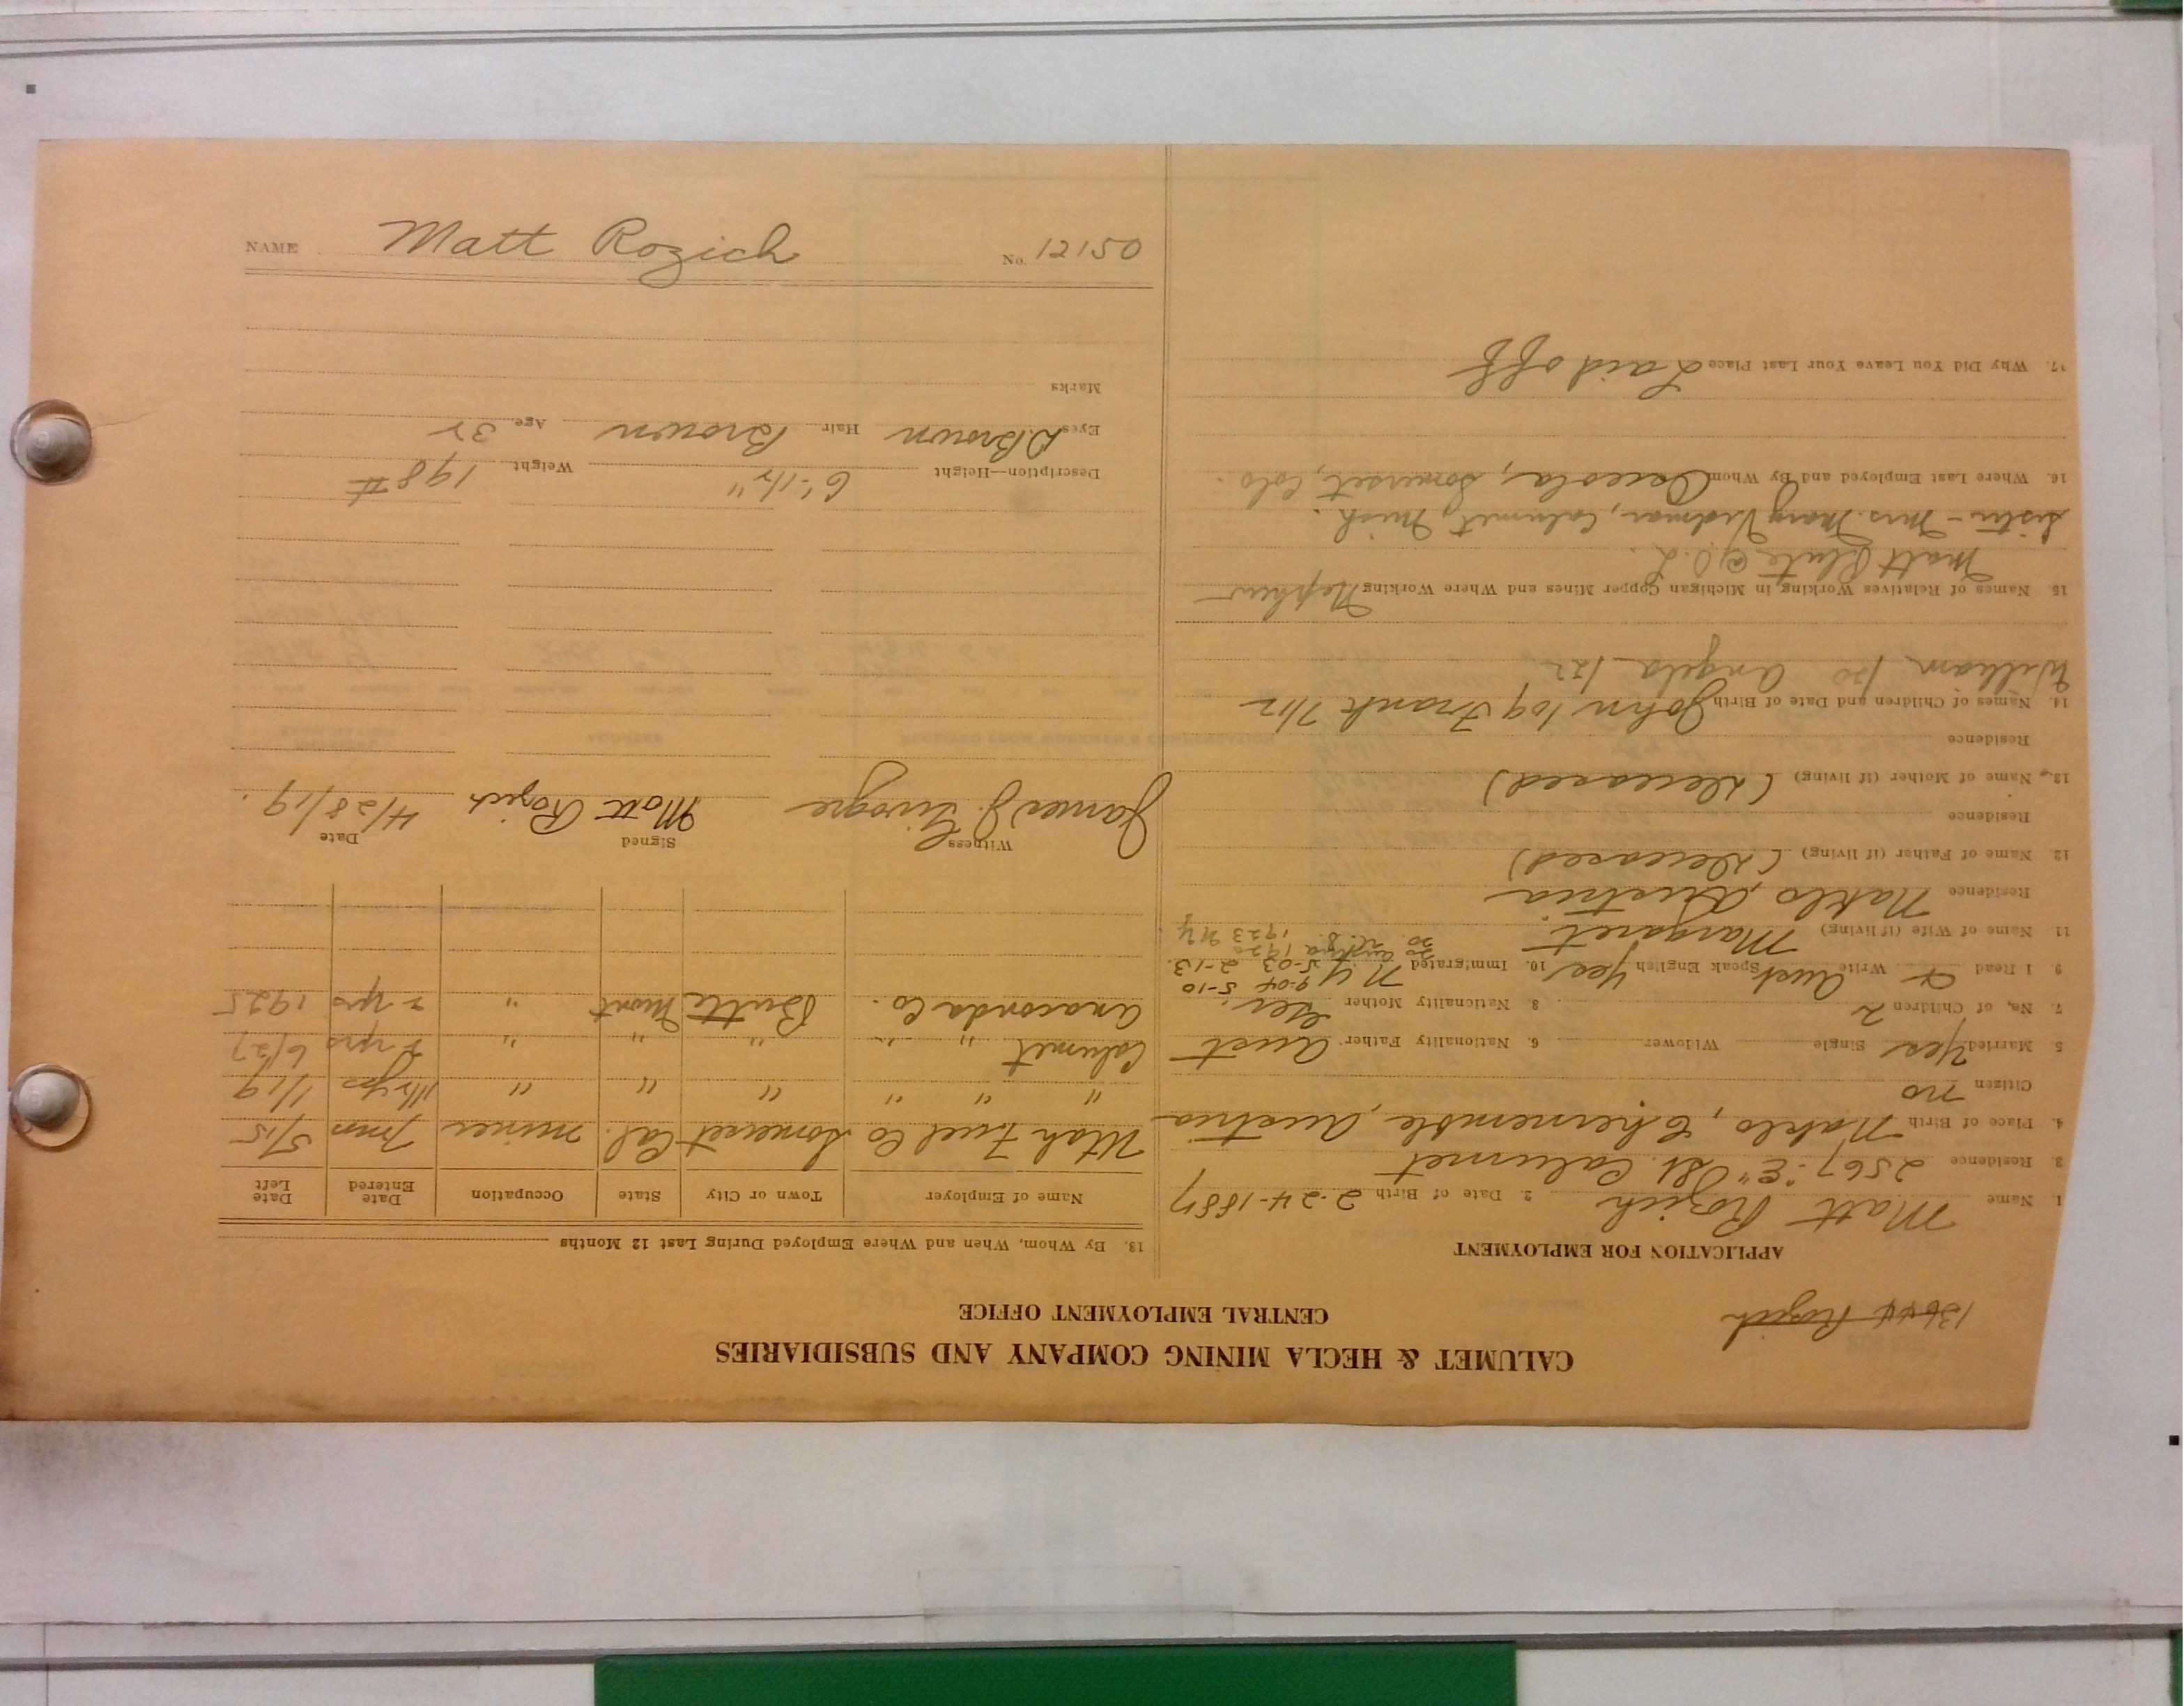 NAME Matt Rozich No. 12150
CALUMET & HECLA MINING COMPANY AND SUBSIDIARIES
CENTRAL EMPLOYMENT OFFICE
13644 Rozich
APPLICATION FOR EMPLOYMENT
1 Name Matt Rozich 2. Date of Birth 2-24-1887
3. Residence 2567 "E" St. Calumet
4. Place of Birth Naklo, Chernemble, Austria
Citizen no
5. Married Yes Single Widower 6. Nationality Father Aust
7. No. of Children 2 8. Nationality Mother
9 I Read & Write Aust Speak English Yes 10. Immigrated N.Y. 5-03 2-13
9-04 5-10
1923 NY
11 Name of Wife (if living) Margaret
Residence Naklo, Austria
12. Name of Father (if living) (Deceased)
Residence
13. Name of Mother (if living) (Deceased)
Residence
14. Names of Children and Date of Birth John /09 Frank 7/12
William /20 Angela /22
15 Names of Relatives Working in Michigan Copper Mines and Where Working Nephew
Matt Klute @ O.L.
Sister - Mrs. Mary Vidmar, Calumet, Mich.
16. Where Last Employed and By Whom Osceola, Somerset, Colo.
17. Why Did You Leave Your Last Place Laid off
18. By Whom, When and Where Employed During Last 12 Months
Name of Employer Town or City State Occupation Date Entered Date Left
Utah Fuel Co Somerset Col. miner 7 mos 5/15
" " " " " " 1/19
Calumet " " " " " 2 yrs 6/27
Anaconda Co. Butte Mont " 2 yrs 1925
Witness Signed Date
James J. Matt Rozich 4/28/19.
Description—Height 6'-1½" Weight 198 #
Eyes D.Brown Hair Brown Age 32
Marks